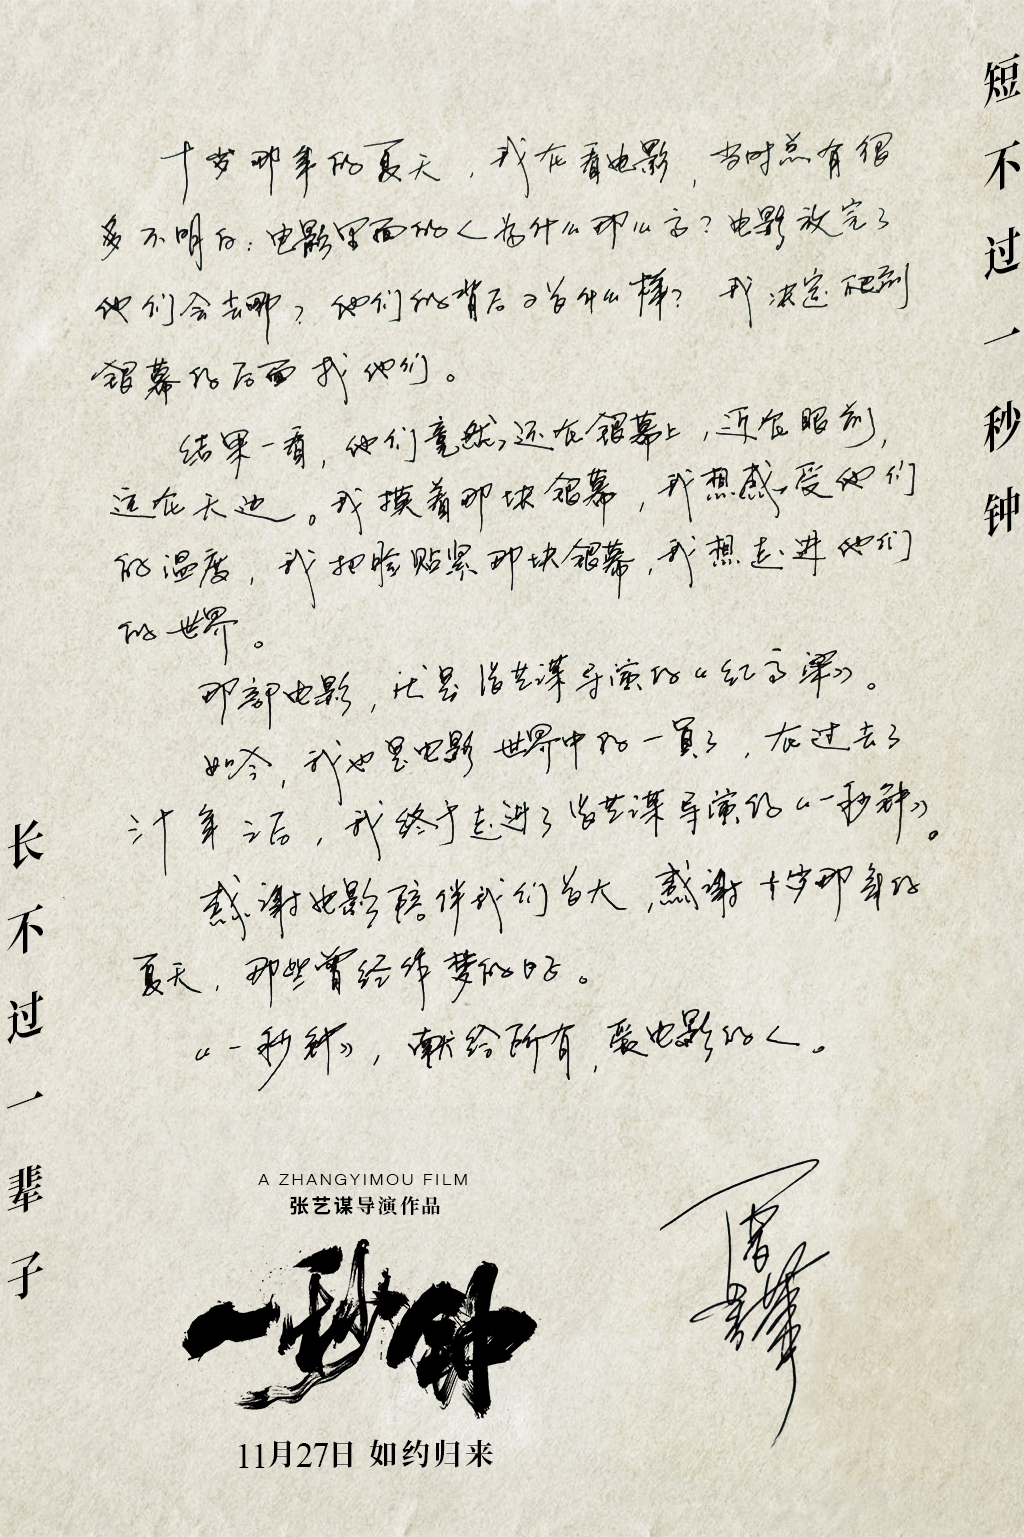 短不过一秒钟
十岁那年的夏天，我在看电影，当时总有很
多不明白：电影里面的人为什么那么高？电影放完了
他们会去哪？他们的背后又是什么样？我决定爬到
银幕的后面找他们。
结果一看，他们竟然还在银幕上，近在眼前，
远在天边。我摸着那块银幕，我想感受他们
的温度，我把脸贴紧那块银幕，我想走进他们
的世界。
那部电影，就是张艺谋导演的《红高粱》。
如今，我也是电影世界中的一員了，在过去了
三十年之后，我终于走进了张艺谋导演的《一秒钟》。
感谢电影陪伴我们长大，感谢十岁那年的
夏天，那些曾经作梦的日子。
《一秒钟》，献给所有爱电影的人。
长不过一辈子
A ZHANGYIMOU FILM
张艺谋导演作品
一秒钟
11月27日 如约归来